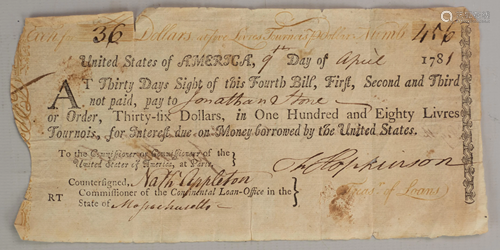 36 Dollars at five Livres Tournois per Dollar Number 456
United States of AMERICA, 9th Day of April 1781
AT Thirty Days Sight of this Fourth Bill, First, Second and Third
not paid, pay to Jonathan Stone
or Order, Thirty-six Dollars, in One Hundred and Eighty Livres
Tournois, for Interest due on Money borrowed by the United States.
To the Commissioner or Commissioners of the
United States of America, at Paris.
Countersigned, Nath Appleton
Commissioner of the Continental Loan-Office in the
RT State of Massachusetts
F Hopkinson
Treas. of Loans